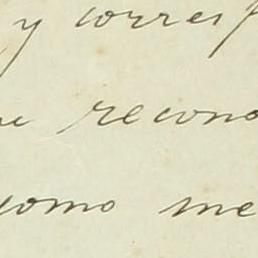 y corresp
recono
como me